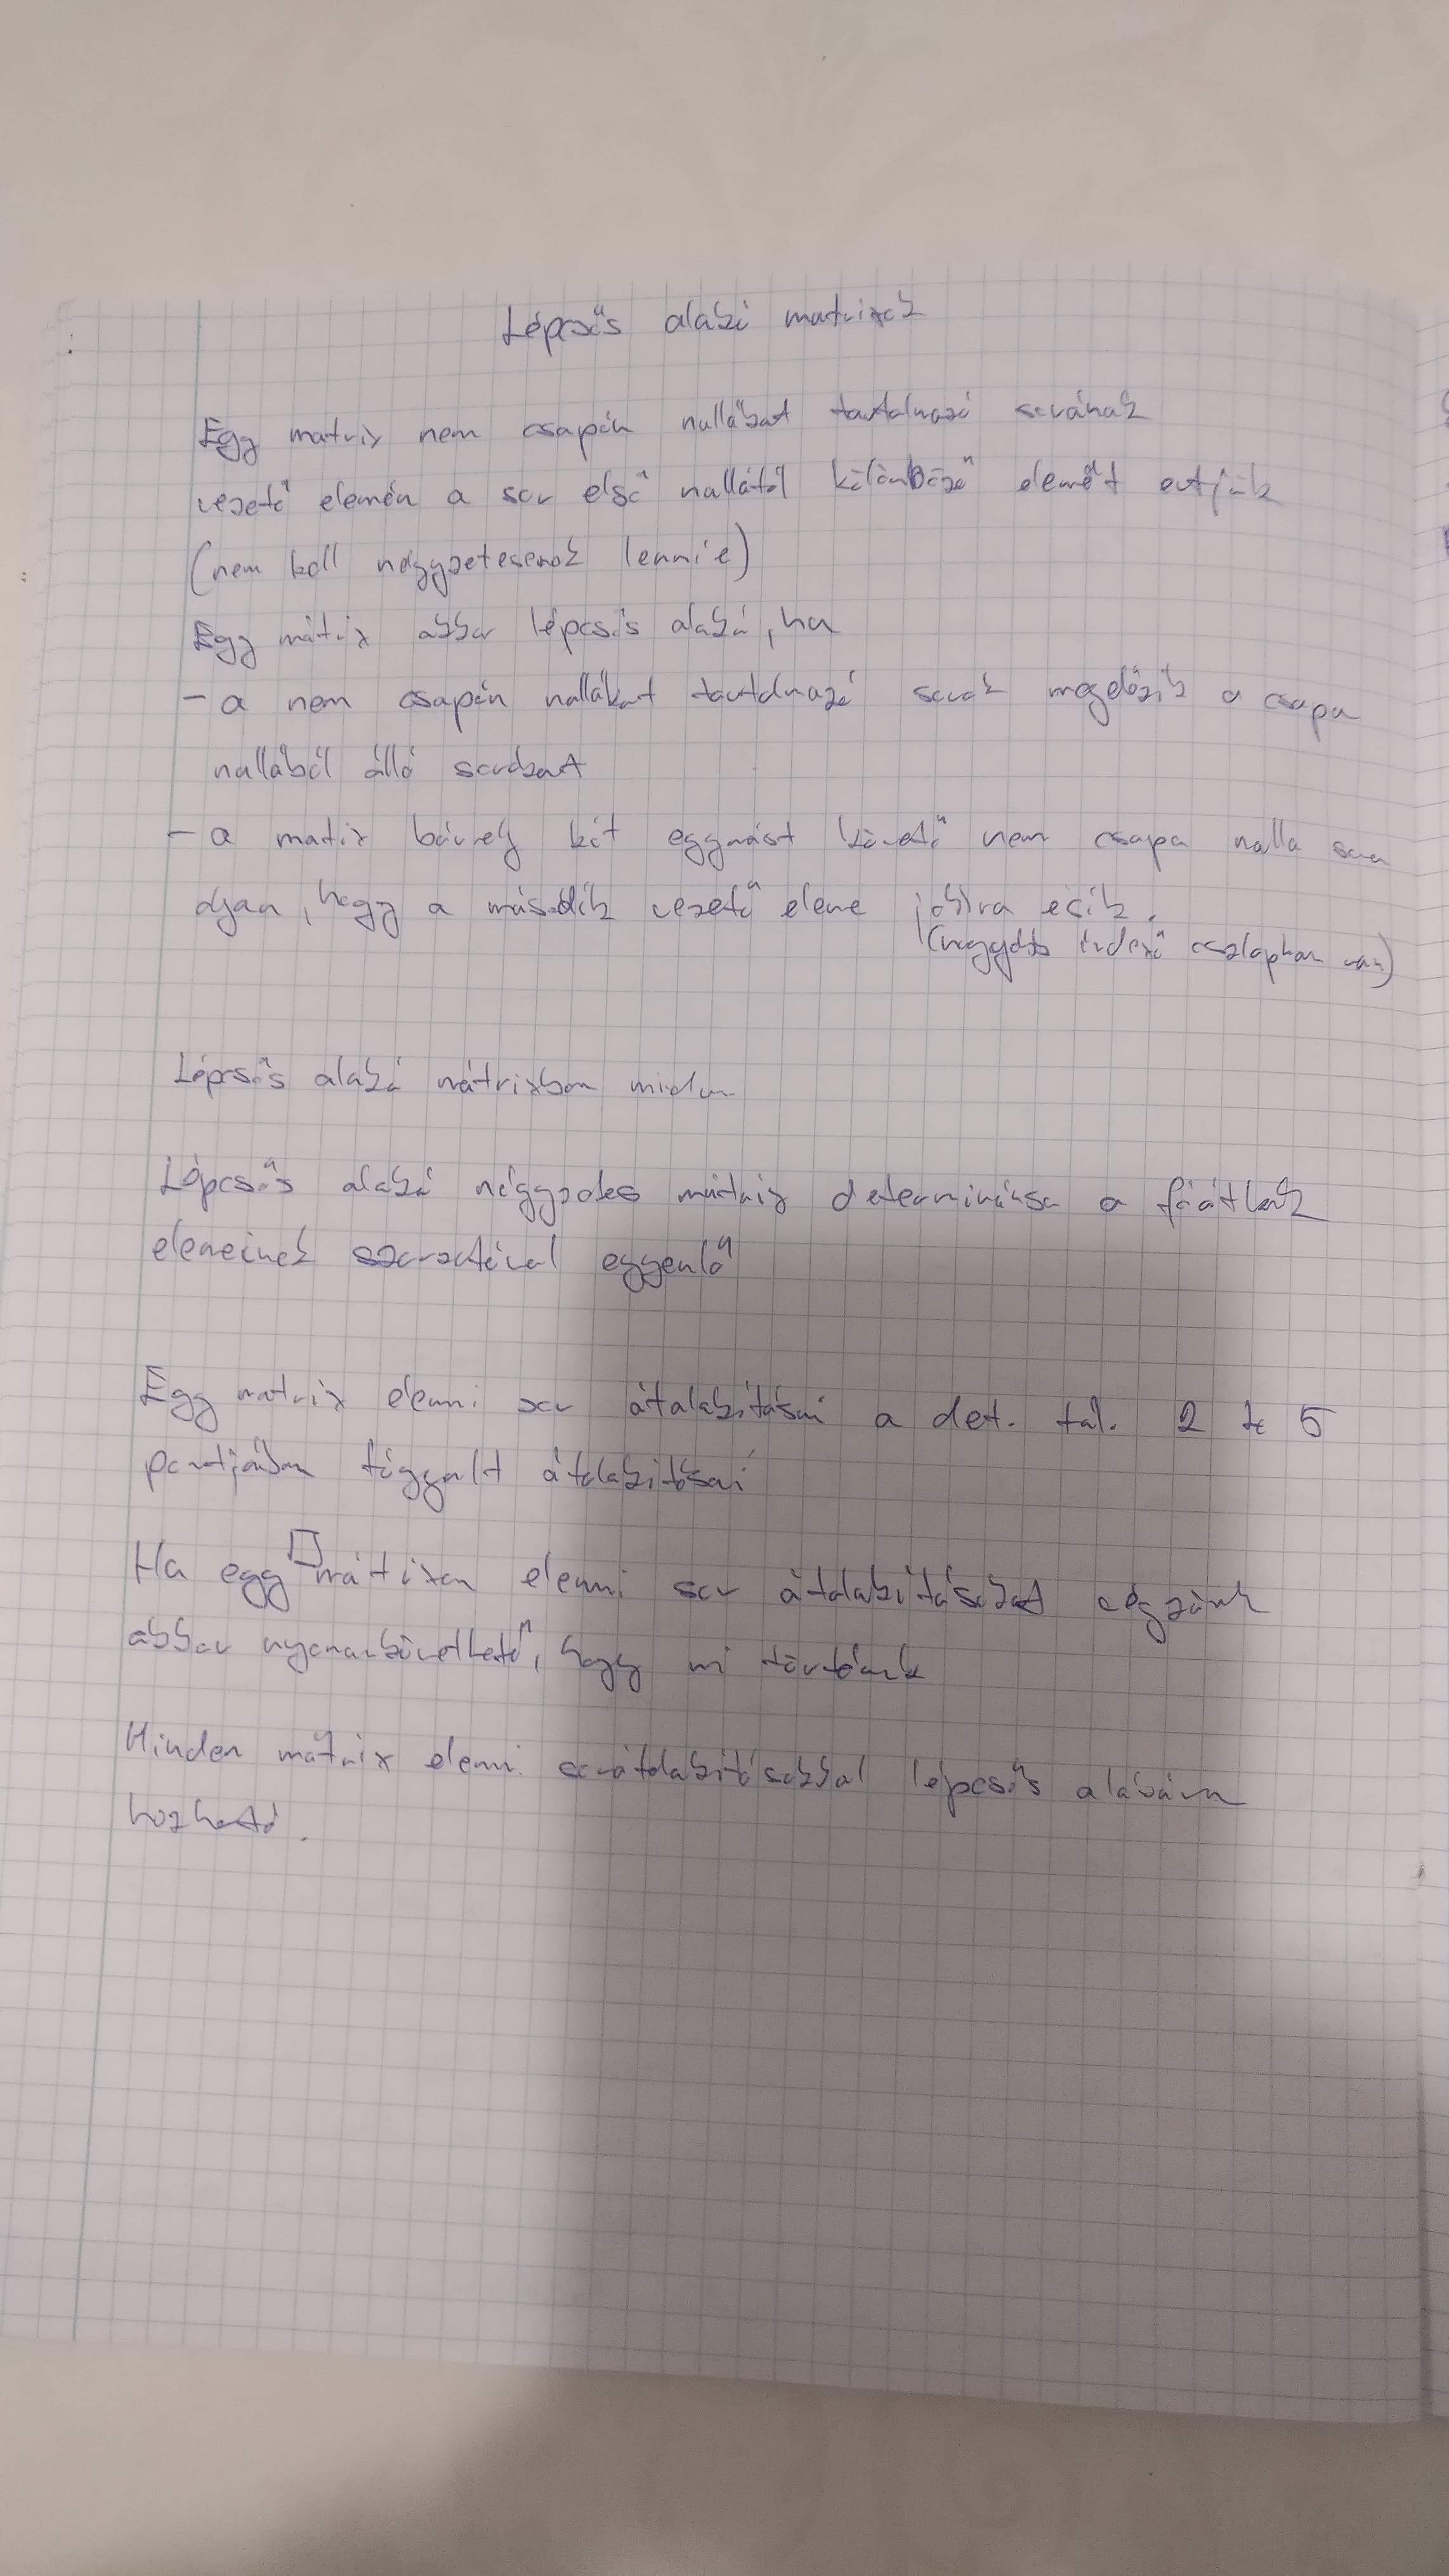 Lépcsős alakú matrixok
Egy matrix nem csapán nullákat tartalmazó sorának
vezető elemén a sor első nullától különböző elemét értjük
(nem kell négyzetesenek lennie)
Egy mátrix akkor lépcsős alakú, ha
- a nem csapán nullákat tartalmazó sorok megelőzik a csapa
nullából álló sorokat
- a matix bármely két egymást követő nem csapa nulla sora
olyan, hogy a második vezető eleme jobbra esik.
(nagyobb indexű oszlopban van)
Lépcsős alakú mátrixban
Lépcsős alakú négyzetes mátrix determinánsa a főátlónak
elemeinek szorzatával egyenlő
Egy matrix elemi sor átalakításai a det. tul. 2 és 5
pontjában függelt átalakításai
Ha egy □ mátixon elemi sor átalakításokat végzünk
akkor nyomonkövethető, hogy mi történik
Minden mátrix elemi sorátalakításokkal lépcsős alakúra
hozható.